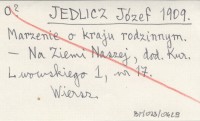 o? JEDLICZ Józef 1909.
Marzenie o kraju rodzinnym.
— Na Ziemi Naszej, dod. Kur.
Lwowskiego 1, nr 17.
Wiersz.